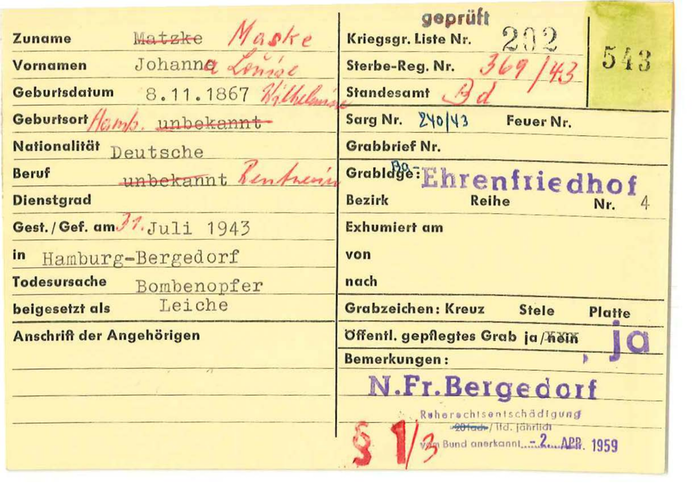 geprüft
Zuname Matzke Maske
Vornamen Johanna Louise
Geburtsdatum 8.11.1867 Wilhelmine
Geburtsort Hamb. unbekannt
Nationalität Deutsche
Beruf unbekannt Rentnerin
Dienstgrad
Gest./Gef. am 31. Juli 1943
in Hamburg-Bergedorf
Todesursache Bombenopfer
beigesetzt als Leiche
Anschrift der Angehörigen
Kriegsgr. Liste Nr. 202
543
Sterbe-Reg. Nr. 369/43
Standesamt Bd
Sarg Nr. 240/43 Feuer Nr.
Grabbrief Nr.
Grablage: Ehrenfriedhof
Bezirk Reihe Nr. 4
Exhumiert am
von
nach
Grabzeichen: Kreuz Stele Platte
Öffentl. gepflegtes Grab ja/nein ja
Bemerkungen:
N.Fr.Bergedorf
Ruherechtsentschädigung
/ lfd. jährlich
vom Bund anerkannt -2. APR. 1959
§ 1/3